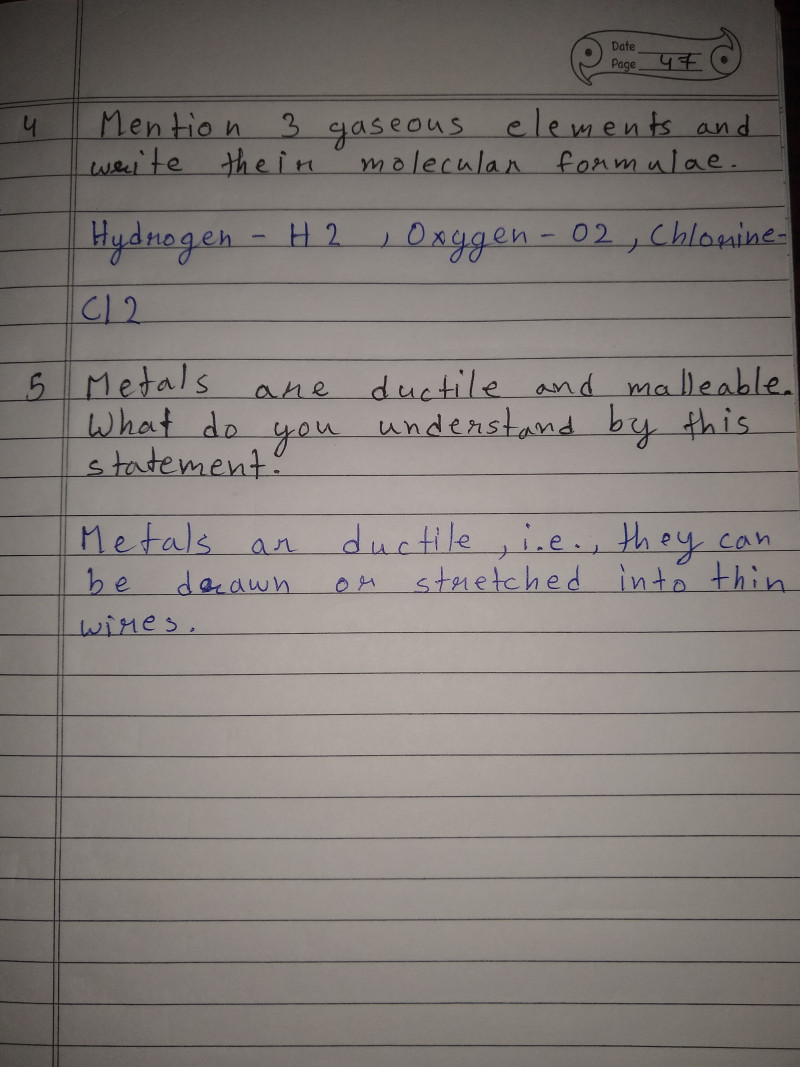 Date
Page 47
4 Mention 3 gaseous elements and
write their molecular formulae.
Hydrogen - H2 , Oxygen - O2 , Chlorine-
Cl2
5 Metals are ductile and malleable.
What do you understand by this
statement.
Metals ar ductile , i.e., they can
be drawn or stretched into thin
wires.